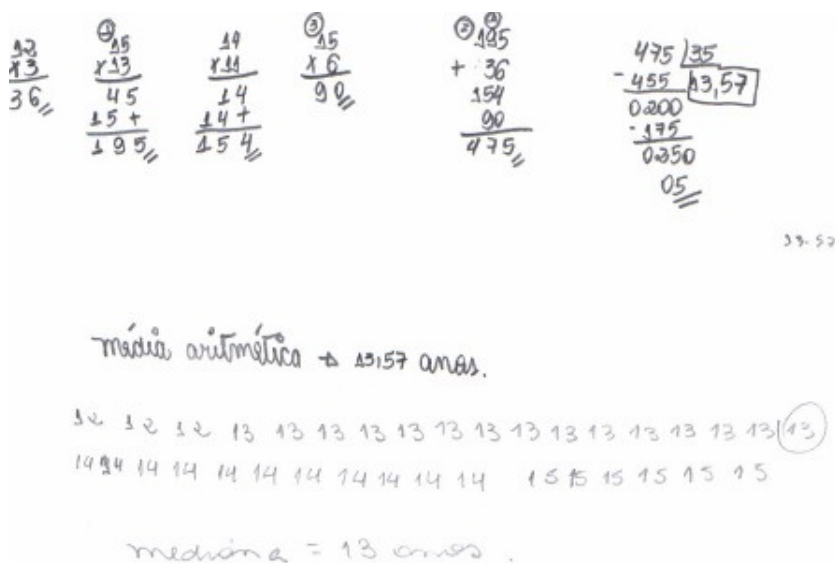 12
x3
36
①
15
x13
45
15+
195
14
x11
14
14+
154
③
15
x6
90
② ②
195
+ 36
154
90
475
475 |35
- 455 13,57
0200
- 175
0250
05
13,57
média aritmética → 13,57 anos.
12 12 12 13 13 13 13 13 13 13 13 13 13 13 13 13 13 13
14 14 14 14 14 14 14 14 14 14 14 15 15 15 15 15 15
mediana = 13 anos.